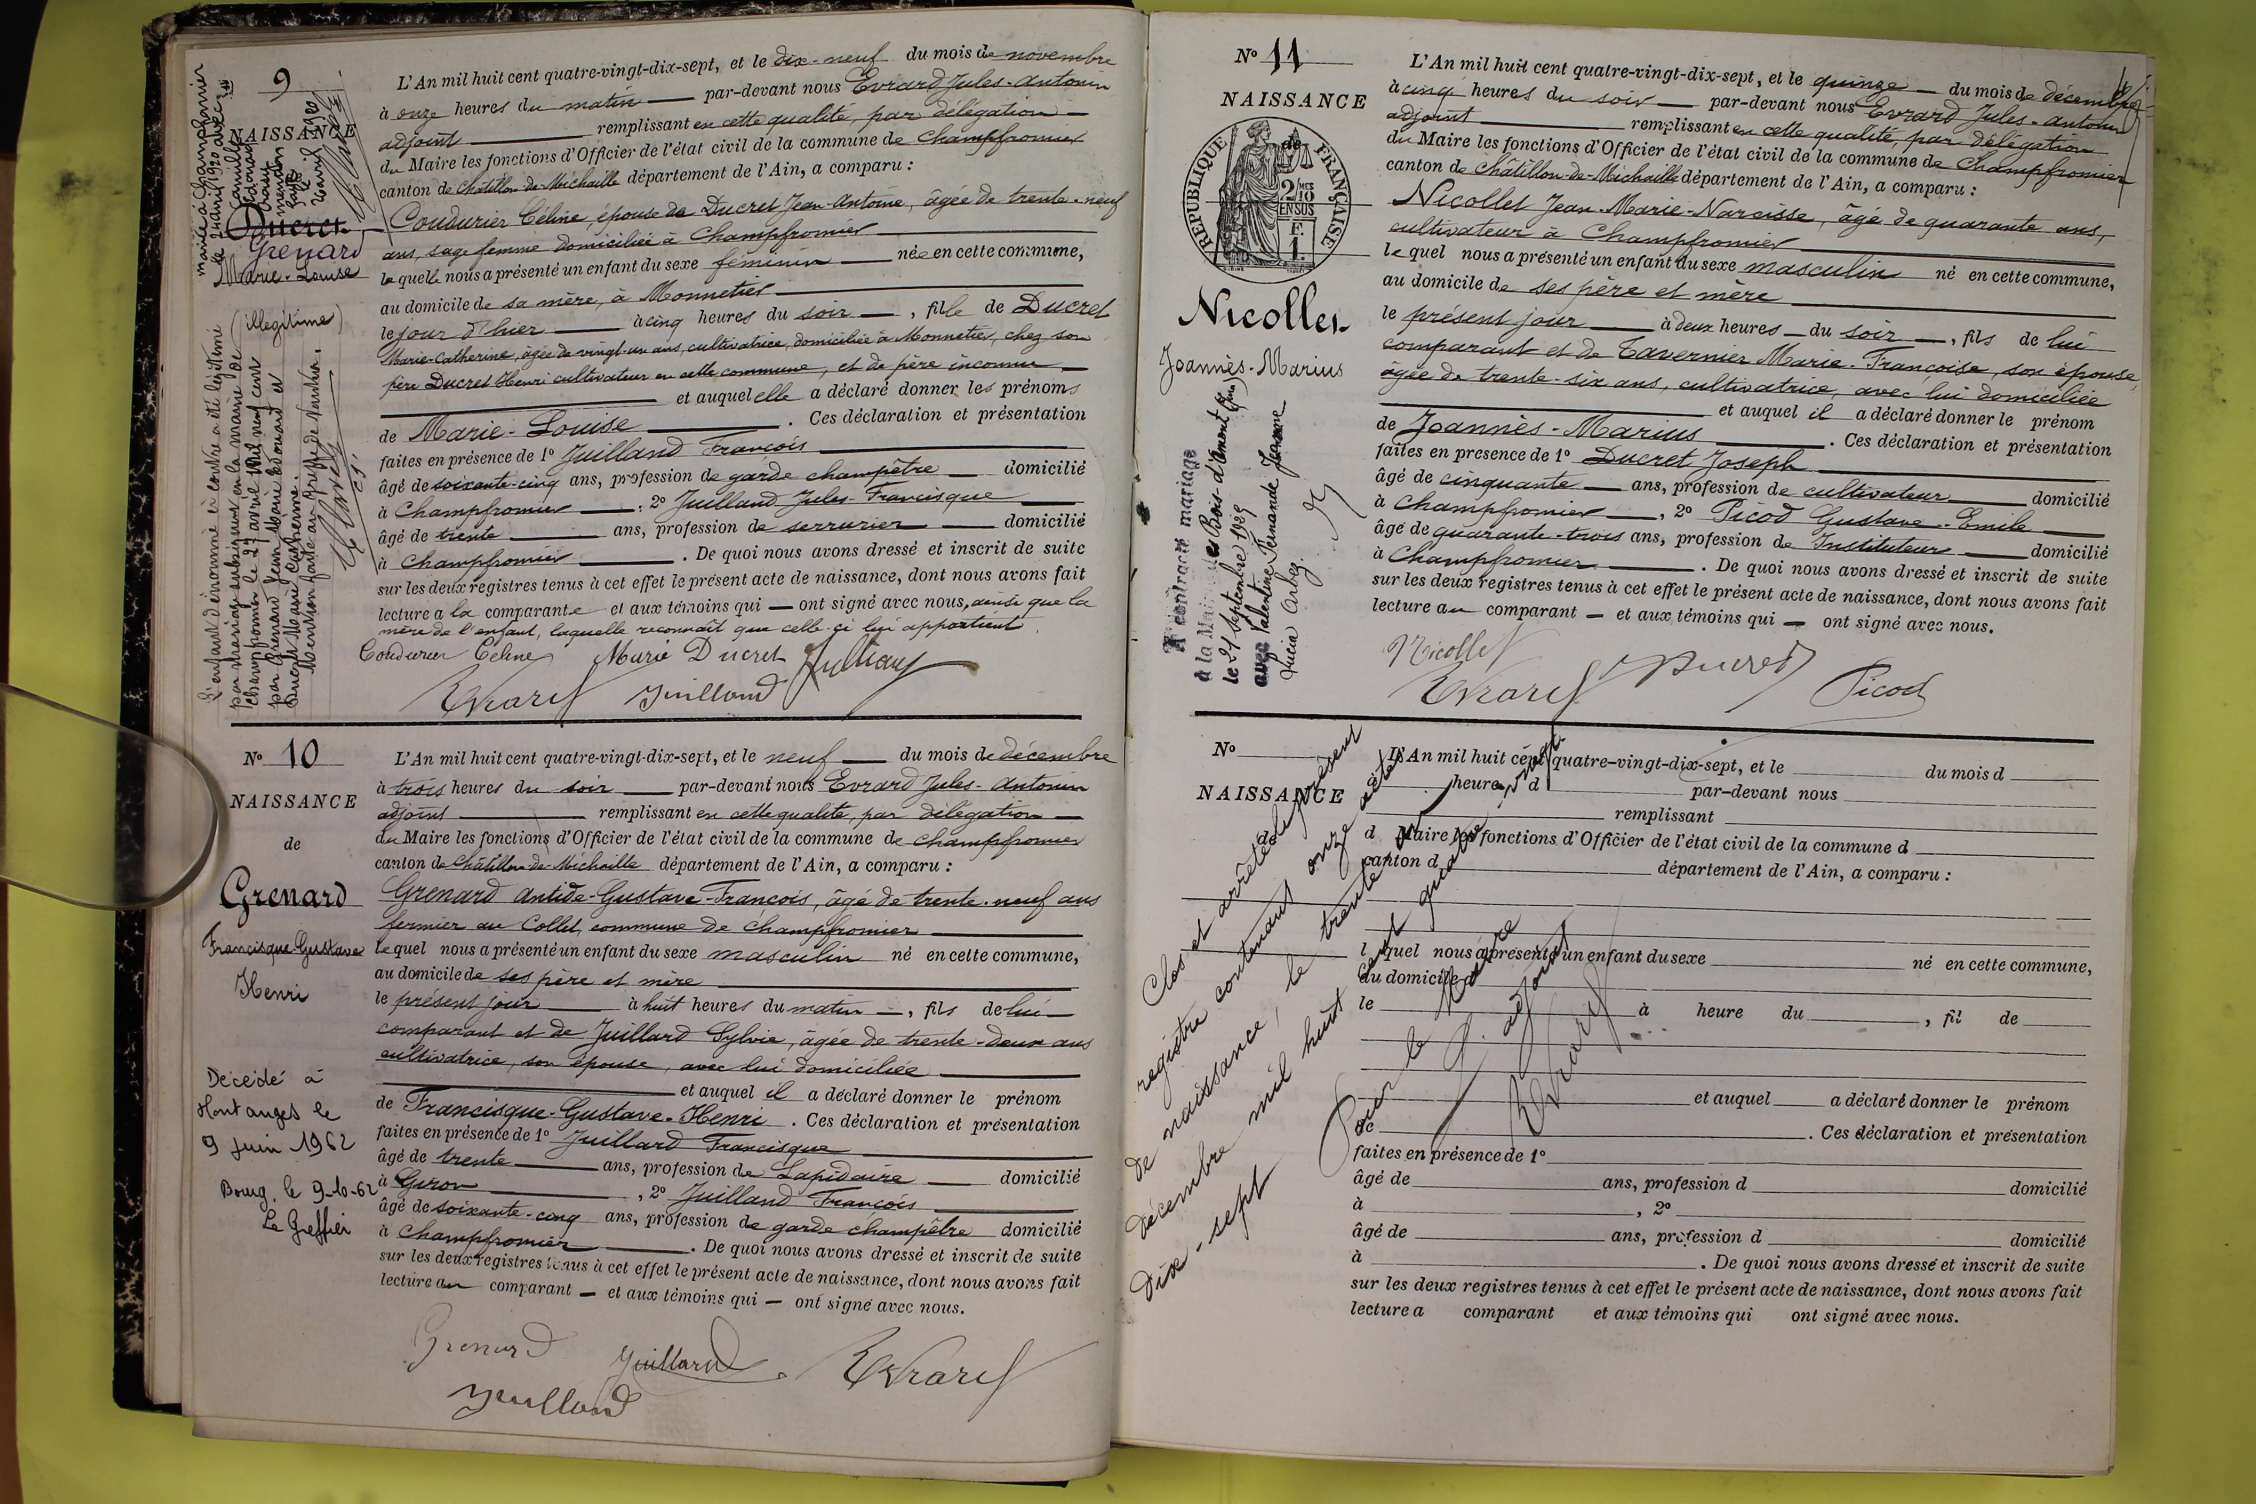 9
NAISSANCE
Ducret
Grenard
Marie-Louise
(illégitime)
marié à Champfromier
le 24 avril 1920 avec
L'enfant dénommé ci contre a été légitimé
par mariage subséquent en la mairie de
Champfromier le 27 avril mil neuf cent
par Grenard Jean Marie Edouard et
Ducret Marie Catherine.
Mention faite au greffe de Nantua.
L'An mil huit cent quatre-vingt-dix-sept, et le dix-neuf du mois de novembre
à onze heures du matin par-devant nous Evrard Jules-Antonin
adjoint remplissant en cette qualité, par délégation
du Maire les fonctions d'Officier de l'état civil de la commune de Champfromier
canton de Châtillon-de-Michaille département de l'Ain, a comparu :
Coudurier Céline, épouse de Ducret Jean-Antoine, âgée de trente-neuf
ans, sage femme domiciliée à Champfromier
laquelle nous a présenté un enfant du sexe féminin née en cette commune,
au domicile de sa mère, à Monnetier
le jour d'hier à cinq heures du soir, fille de Ducret
Marie-Catherine, âgée de vingt-un ans, cultivatrice, domiciliée à Monnetier, chez son
père Ducret Henri cultivateur en cette commune, et de père inconnu
et auquel elle a déclaré donner les prénoms
de Marie-Louise. Ces déclaration et présentation
faites en présence de 1º Juilland François
âgé de soixante-cinq ans, profession de garde champêtre domicilié
à Champfromier, 2º Juilland Jules-Francisque
âgé de trente ans, profession de serrurier domicilié
à Champfromier. De quoi nous avons dressé et inscrit de suite
sur les deux registres tenus à cet effet le présent acte de naissance, dont nous avons fait
lecture a la comparante et aux témoins qui ont signé avec nous, ainsi que la
mère de l'enfant, laquelle reconnaît que celle-ci lui appartient.
Coudurier Céline Marie Ducret Juilland
Evrard Juilland
Nº 10
NAISSANCE
de
Grenard
Francisque-Gustave
Henri
Décédé à
Montanges le
9 juin 1962
Bourg, le 9-10-62
Le Greffier
L'An mil huit cent quatre-vingt-dix-sept, et le neuf du mois de décembre
à trois heures du soir par-devant nous Evrard Jules-Antonin
adjoint remplissant en cette qualité, par délégation
du Maire les fonctions d'Officier de l'état civil de la commune de Champfromier
canton de Châtillon-de-Michaille département de l'Ain, a comparu :
Grenard Antide-Gustave-François, âgé de trente-neuf ans
fermier au Collet, commune de Champfromier
lequel nous a présenté un enfant du sexe masculin né en cette commune,
au domicile de ses père et mère
le présent jour à huit heures du matin, fils de lui
comparant et de Juillard Sylvie, âgée de trente-deux ans
cultivatrice, son épouse, avec lui domiciliée
et auquel il a déclaré donner le prénom
de Francisque-Gustave-Henri. Ces déclaration et présentation
faites en présence de 1º Juillard Francisque
âgé de trente ans, profession de Lapidaire domicilié
à Giron, 2º Juilland François
âgé de soixante-cinq ans, profession de garde champêtre domicilié
à Champfromier. De quoi nous avons dressé et inscrit de suite
sur les deux registres tenus à cet effet le présent acte de naissance, dont nous avons fait
lecture au comparant et aux témoins qui ont signé avec nous.
Grenard Juillard Evrard
Juilland
Nº 11
NAISSANCE
de
REPUBLIQUE FRANÇAISE
2/10 MES
EN SUS
F.
1.
Nicollet
Joannès-Marius
A contracté mariage
à la Mairie de Bois d'Amont (Jura)
le 21 septembre 1929
avec Valentine Fernande Jeanne
Lucia Arbez
L'An mil huit cent quatre-vingt-dix-sept, et le quinze du mois de décembre
à cinq heures du soir par-devant nous Evrard Jules-Antonin
adjoint remplissant en cette qualité, par délégation
du Maire les fonctions d'Officier de l'état civil de la commune de Champfromier
canton de Châtillon-de-Michaille département de l'Ain, a comparu :
Nicollet Jean-Marie-Narcisse, âgé de quarante ans,
cultivateur à Champfromier
lequel nous a présenté un enfant du sexe masculin né en cette commune,
au domicile de ses père et mère
le présent jour à deux heures du soir, fils de lui
comparant et de Tavernier Marie-Françoise, son épouse,
âgée de trente-six ans, cultivatrice, avec lui domiciliée
et auquel il a déclaré donner le prénom
de Joannès-Marius. Ces déclaration et présentation
faites en présence de 1º Ducret Joseph
âgé de cinquante ans, profession de cultivateur domicilié
à Champfromier, 2º Picod Gustave-Emile
âgé de quarante-trois ans, profession de Instituteur domicilié
à Champfromier. De quoi nous avons dressé et inscrit de suite
sur les deux registres tenus à cet effet le présent acte de naissance, dont nous avons fait
lecture au comparant et aux témoins qui ont signé avec nous.
Nicollet Ducret
Evrard Picod
Nº
NAISSANCE
de
L'An mil huit cent quatre-vingt-dix-sept, et le du mois d
à heure d par-devant nous
remplissant
d Maire les fonctions d'Officier de l'état civil de la commune d
canton d département de l'Ain, a comparu :
l quel nous a présenté un enfant du sexe né en cette commune,
au domicile
le à heure du , fil de
et auquel a déclaré donner le prénom
de . Ces déclaration et présentation
faites en présence de 1º
âgé de ans, profession d domicilié
à , 2º
âgé de ans, profession d domicilié
à . De quoi nous avons dressé et inscrit de suite
sur les deux registres tenus à cet effet le présent acte de naissance, dont nous avons fait
lecture a comparant et aux témoins qui ont signé avec nous.
Clos et arrêté le présent
registre contenant onze actes
de naissance, le trente un
décembre mil huit cent quatre vingt
dix-sept
Pour le Maire
l'adjoint
Evrard